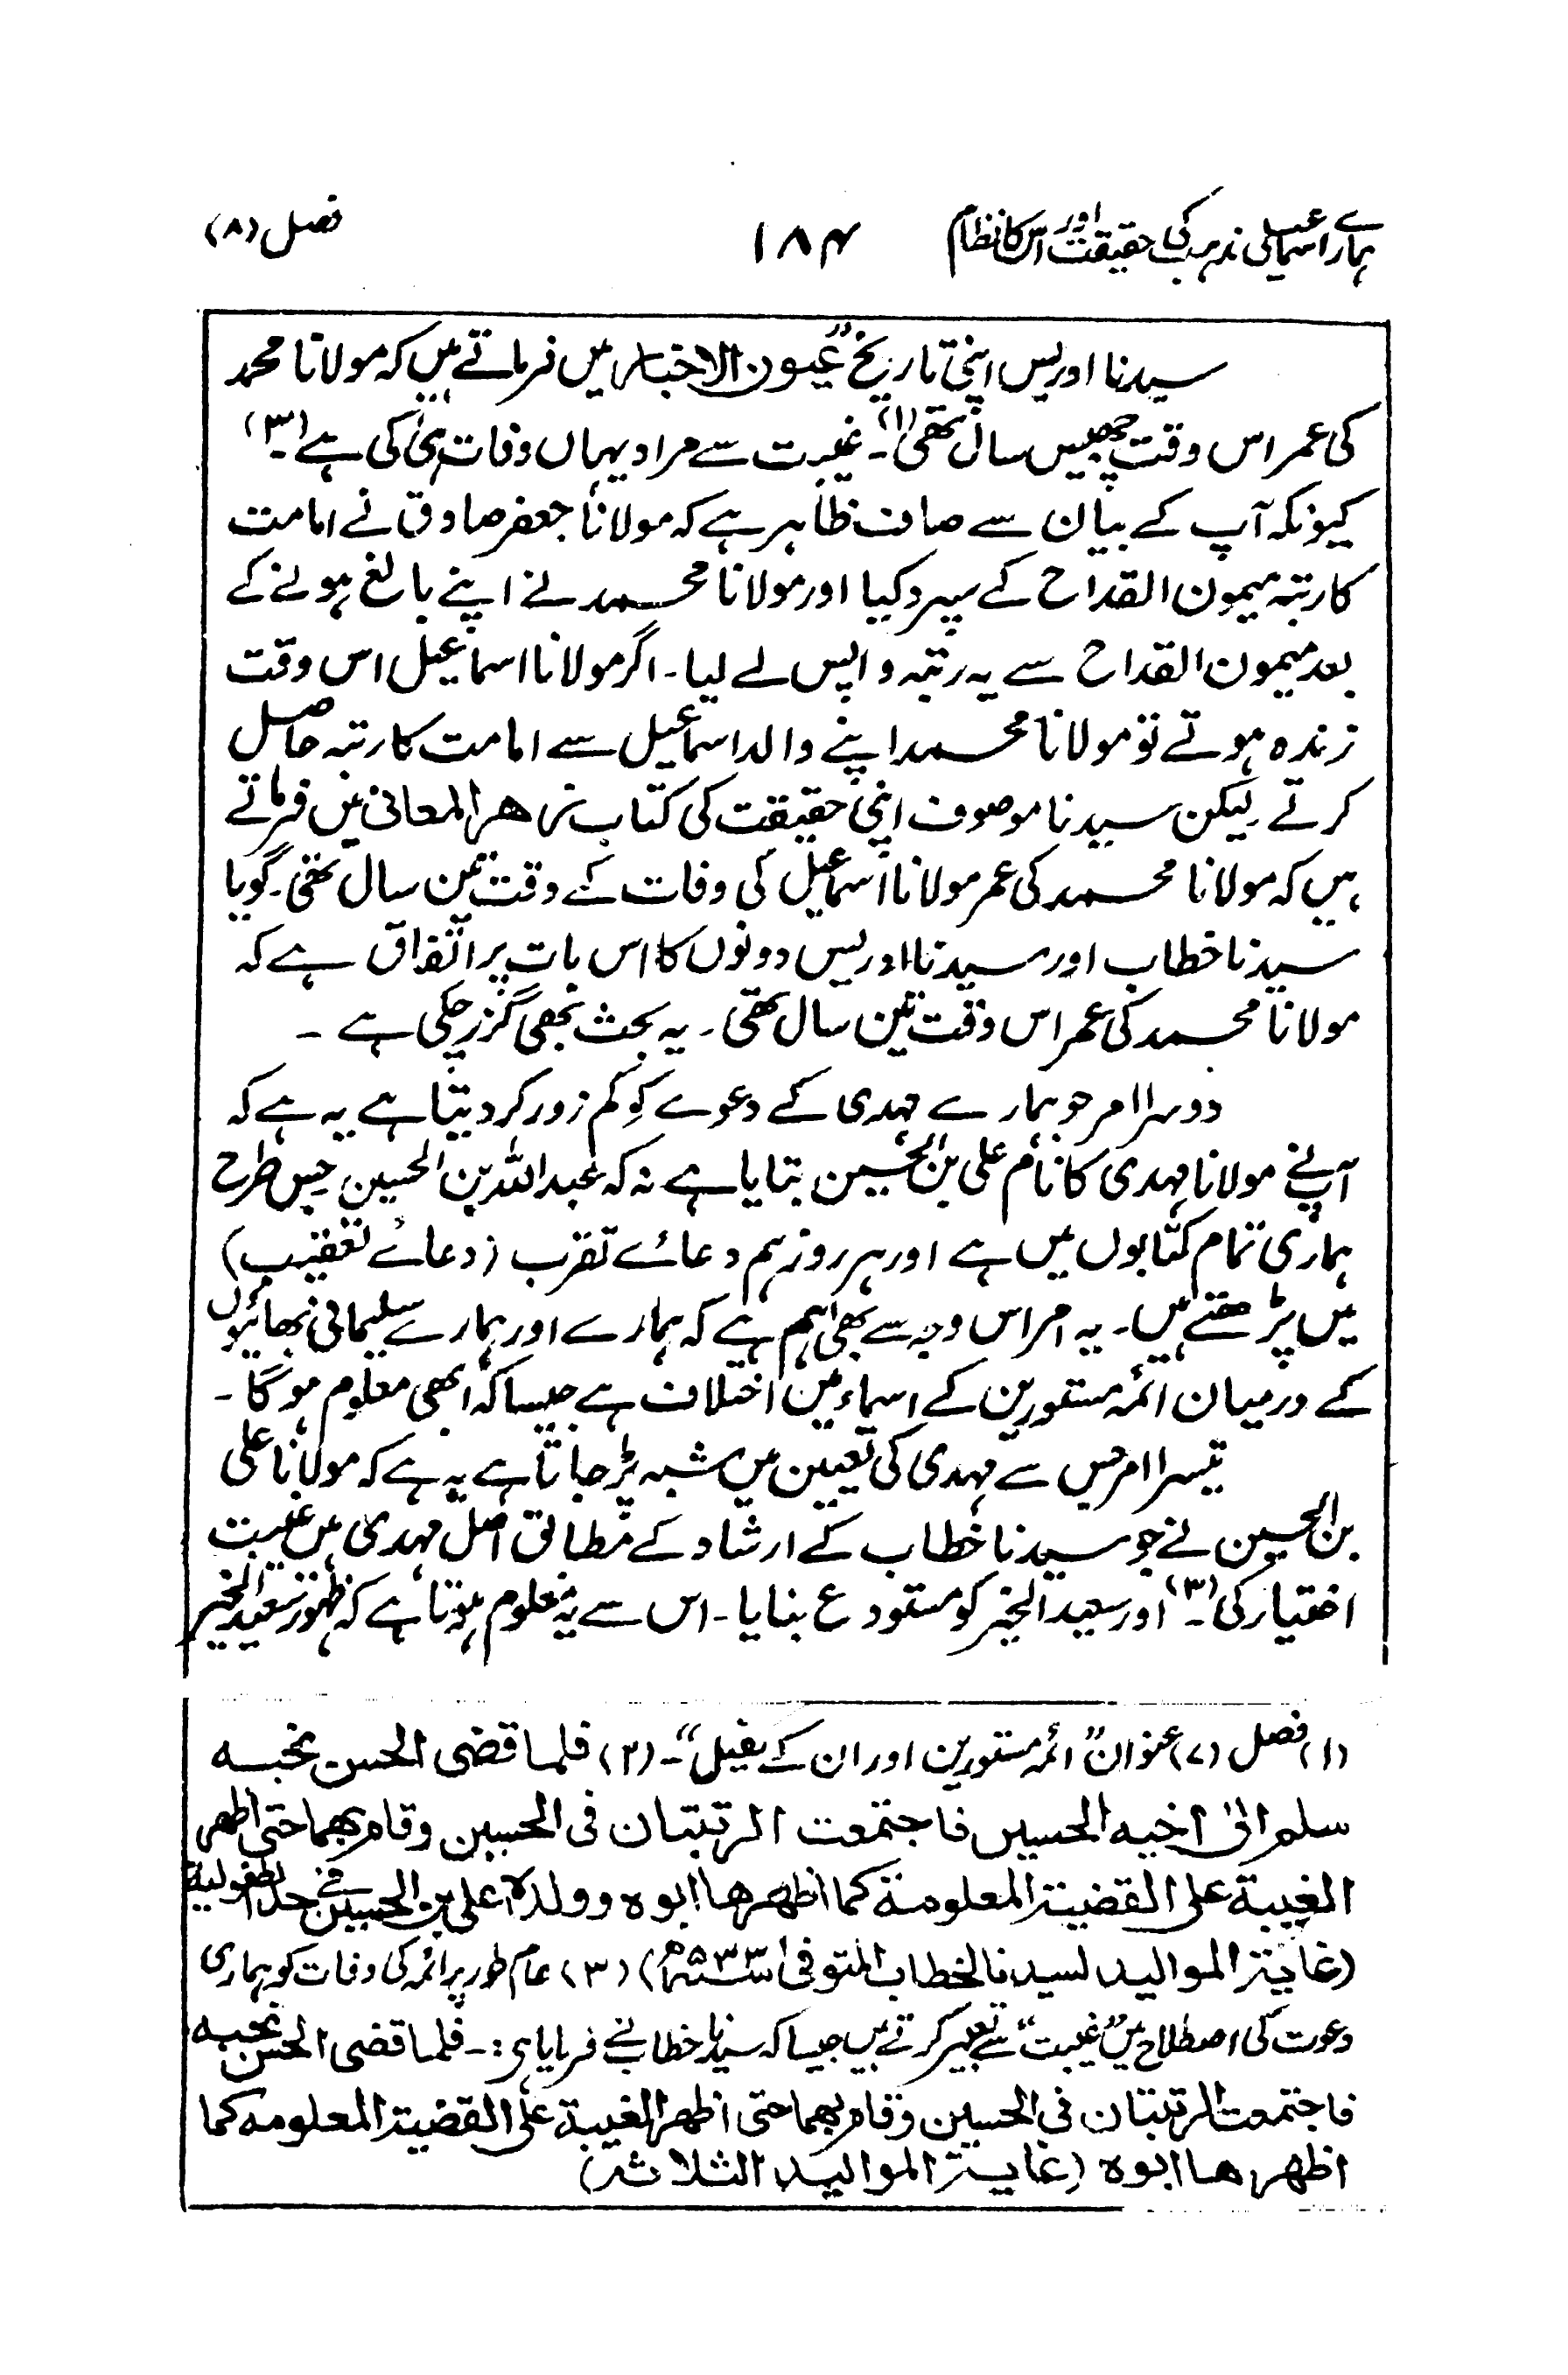 ہمارے اسماعیلی مذہب کی حقیقت اور اس کا نظام ۱۸۴ فصل (۸)
سیدنا ادریس اپنی تاریخ ”عیون الاخبار میں فرماتے ہیں کہ مولانا محمد
کی عمر اس وقت چھبیس سال تھی(۱)۔ غیبت سے مراد یہاں وفات ہی کی ہے(۳)۔
کیونکہ آپ کے بیان سے صاف ظاہر ہے کہ مولانا جعفر صادق نے امامت
کا رتبہ میمون القداح کے سپرد کیا اور مولانا محمد نے اپنے بالغ ہونے کے
بعد میمون القداح سے یہ رتبہ واپس لے لیا۔ اگر مولانا اسماعیل اس وقت
زندہ ہوتے تو مولانا محمد اپنے والد اسماعیل سے امامت کا رتبہ حاصل
کرتے لیکن سیدنا موصوف اپنی حقیقت کی کتاب زھر المعانی میں فرماتے
ہیں کہ مولانا محمد کی عمر مولانا اسماعیل کی وفات کے وقت تین سال تھی۔ گویا
سیدنا خطاب اور سیدنا ادریس دونوں کا اس بات پر اتفاق ہے کہ
مولانا محمد کی عمر اس وقت تین سال تھی۔ یہ بحث بھی گزر چکی ہے ۔
دوسرا امر جو ہمارے مہدی کے دعوے کو کم زور کر دیتا ہے یہ ہے کہ
آپنے مولانا مہدی کا نام علی بن الحسین بتایا ہے نہ کہ عبد اللہ بن الحسین جس طرح
ہماری تمام کتابوں میں ہے اور ہر روز ہم دعائے تقرب (دعائے تعقیب)
میں پڑھتے ہیں۔ یہ امر اس وجہ سے بھی اہم ہے کہ ہمارے اور ہمارے سلیمانی بھائیوں
کے درمیان ائمہ مستورین کے اسماء میں اختلاف ہے جیسا کہ ابھی معلوم ہو گا ۔
تیسرا امر جس سے مہدی کی تعیین میں شبہ پڑ جاتا ہے یہ ہے کہ مولانا علی
بن الحسین نے جو سیدنا خطاب کے ارشاد کے مطابق اصل مہدی ہیں غیبت
اختیار کی(۳)۔ اور سعید الخیر کو مستودع بنایا۔ اس سے یہ معلوم ہوتا ہے کہ ظہور سعید الخیر
(۱) فصل (۷) عنوان ”ائمہ مستورین اور ان کے کفیل“۔ (۲) فلما قضی الحسن نحبه
سلم الیٰ اخیه الحسین فاجتمعت الرتبتان فی الحسین وقام بهما حتی اظهر
الغیبة علی القضیة المعلومة کما اظهرها ابوه وولده علی بن الحسین فی حد الطفولیة
(غایة الموالید لسیدنا الخطاب المتوفی ۵۳۳ھ) (۳) عام طور پر ائمہ کی وفات کو ہماری
دعوت کی اصطلاح میں ”غیبت“ سے تعبیر کرتے ہیں جیسا کہ سیدنا خطاب نے فرمایا ہے:۔ فلما قضی الحسن نحبه
فاجتمعت الرتبتان فی الحسین وقام بهما حتی اظهر الغیبة علی القضیة المعلومه کما
اظهرها ابوه (غایة الموالید الثلاثة)